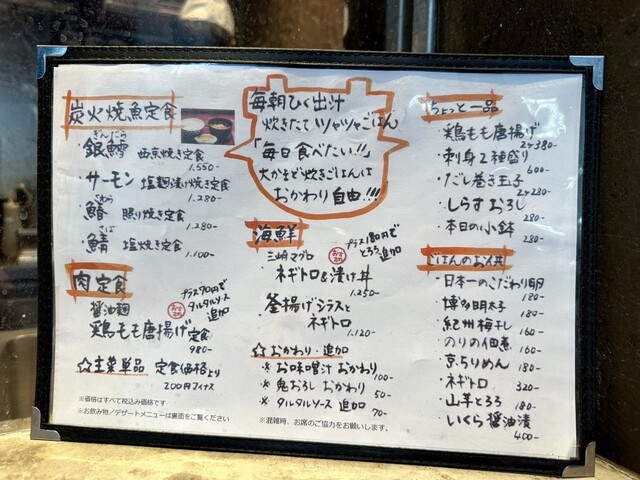 炭火焼魚定食
ぎんだら
・銀鱈 西京焼き定食
1.550-
・サーモン 塩麹漬け焼き定食
1.280-
さわら
・鰆 照り焼き定食
1.280-
さば
・鯖 塩焼き定食
1.100-
肉定食
プラス90円で
タルタルソース
追加
醤油麹
鶏もも唐揚げ定食
980-
☆主菜単品 定食価格より
200円マイナス
※価格はすべて税込み価格です
※お飲み物／デザートメニューは裏面をご覧ください
毎朝ひく出汁
炊きたてツヤツヤごはん
「毎日食べたい!!」
大かまど炊きごはんは
おかわり自由!!!
海鮮
プラス180円で
とろろ追加
三崎マグロ
・ネギトロ&漬け丼
1.250-
・釜揚げシラスと
ネギトロ
1.120-
☆おかわり・追加
※お味噌汁おかわり
100-
※鬼おろしおかわり
50-
※タルタルソース追加
70-
※混雑時、お席のご協力をお願いします。
ちょっと一品
・鶏もも唐揚げ
2ケ380-
・刺身2種盛り
600-
・だし巻き玉子
2ケ280-
・しらすおろし
280-
・本日の小鉢
280-
ごはんのお供
・日本一のこだわり卵
180-
・博多明太子
180-
・紀州梅干し
160-
・のりの佃煮
160-
・京ちりめん
180-
・ネギトロ
320-
・山芋とろろ
180-
・いくら醤油漬
400-